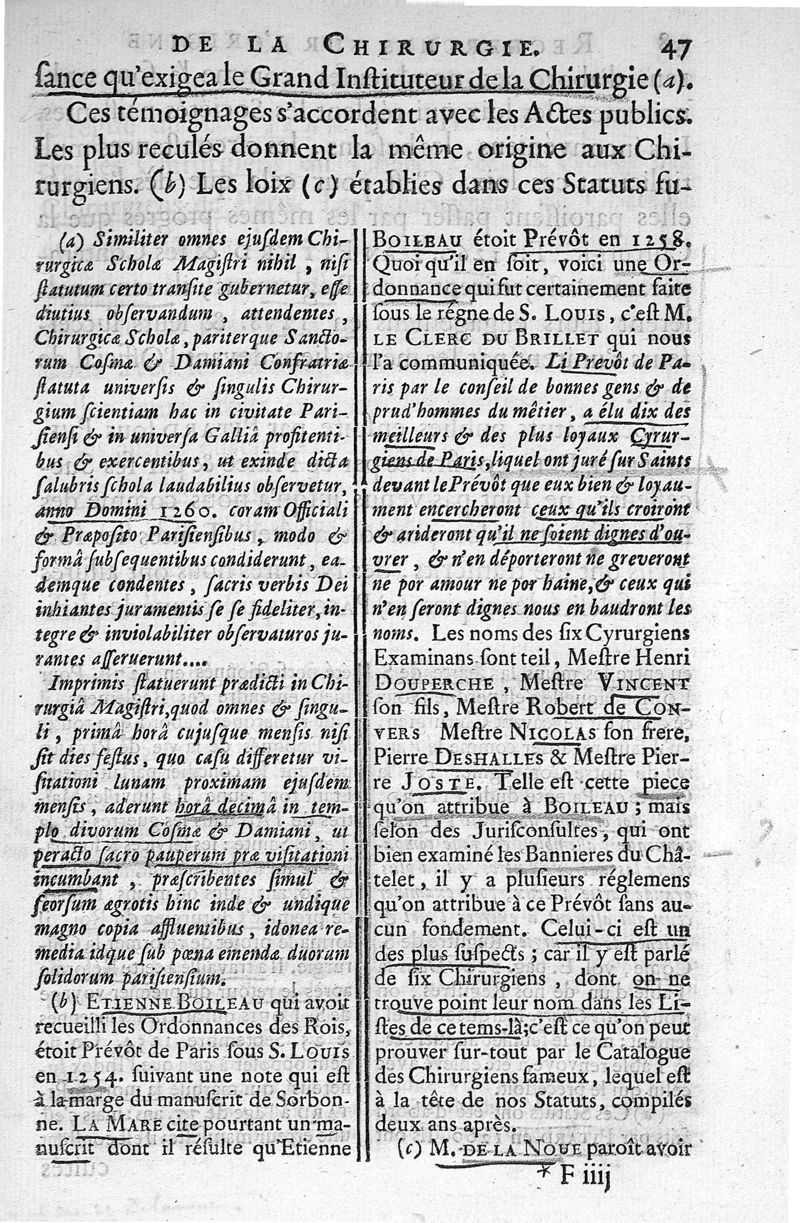 DE LA CHIRURGIE. 47
ſance qu'exigea le Grand Inſtituteur de la Chirurgie (a).
Ces témoignages s'accordent avec les Actes publics.
Les plus reculés donnent la même origine aux Chi-
rurgiens. (b) Les loix (c) établies dans ces Statuts fu-
(a) Similiter omnes ejuſdem Chi-
rurgicæ Scholæ Magiſtri nihil, niſi
ſtatutum certo tranſite gubernetur, eſſe
diutius obſervandum, attendentes,
Chirurgicæ Scholæ, pariterque Sancto-
rum Coſmæ & Damiani Confratriæ
ſtatuta univerſis & ſingulis Chirur-
gium ſcientiam hac in civitate Pari-
ſienſi & in univerſa Galliâ profitenti-
bus & exercentibus, ut exinde dicta
ſalubris ſchola laudabilius obſervetur,
anno Domini 1260. coram Officiali
& Præpoſito Pariſienſibus, modo &
formâ ſubſequentibus condiderunt, ea-
demque condentes, ſacris verbis Dei
inhiantes juramentis ſe ſe fideliter, in-
tegre & inviolabiliter obſervaturos ju-
rantes aſſeruerunt....
Imprimis ſtatuerunt prædicti in Chi-
rurgiâ Magiſtri, quod omnes & ſingu-
li, primâ horâ cujuſque menſis niſi
ſit dies feſtus, quo caſu differetur vi-
ſitationi lunam proximam ejuſdem
menſis, aderunt horâ decimâ in tem-
plo divorum Coſmæ & Damiani, ut
peracto ſacro pauperum præ viſitationi
incumbant, præſcribentes ſimul &
ſeorſum ægrotis hinc inde & undique
magno copia affluentibus, idonea re-
media idque ſub pœna emendæ duorum
ſolidorum pariſienſium.
(b) ETIENNE BOILEAU qui avoit
recueilli les Ordonnances des Rois,
étoit Prévôt de Paris ſous S. LOUIS
en 1254. ſuivant une note qui eſt
à la marge du manuſcrit de Sorbon-
ne. LA MARE cite pourtant un ma-
nuſcrit dont il réſulte qu'Etienne
BOILEAU étoit Prévôt en 1258.
Quoi qu'il en ſoit, voici une Or-
donnance qui fut certainement faite
ſous le régne de S. LOUIS, c'eſt M.
LE CLERC DU BRILLET qui nous
l'a communiquée. Li Prevôt de Pa-
ris par le conſeil de bonnes gens & de
prud'hommes du mêtier, a élu dix des
meilleurs & des plus loyaux Cyrur-
giens de Paris, liquel ont juré ſur Saints
devant le Prévôt que eux bien & loyau-
ment encercheront ceux qu'ils croiront
& arideront qu'il ne ſoient dignes d'ou-
vrer, & n'en déporteront ne greveront
ne por amour ne por haine, & ceux qui
n'en ſeront dignes nous en baudront les
noms. Les noms des ſix Cyrurgiens
Examinans ſont teil, Meſtre Henri
DOUPERCHE, Meſtre VINCENT
ſon fils, Meſtre Robert de CON-
VERS Meſtre NICOLAS ſon frere,
Pierre DESHALLES & Meſtre Pier-
re JOSTE. Telle eſt cette piece
qu'on attribue à BOILEAU; mais
ſelon des Juriſconſultes, qui ont
bien examiné les Bannieres du Châ-
telet, il y a pluſieurs réglemens
qu'on attribue à ce Prévôt ſans au-
cun fondement. Celui-ci eſt un
des plus ſuſpects; car il y eſt parlé
de ſix Chirurgiens, dont on ne
trouve point leur nom dans les Li-
ſtes de ce tems-là; c'eſt ce qu'on peut
prouver ſur-tout par le Catalogue
des Chirurgiens fameux, lequel eſt
à la tête de nos Statuts, compilés
deux ans après.
(c) M. DE LA NOUE paroît avoir
* F iiij